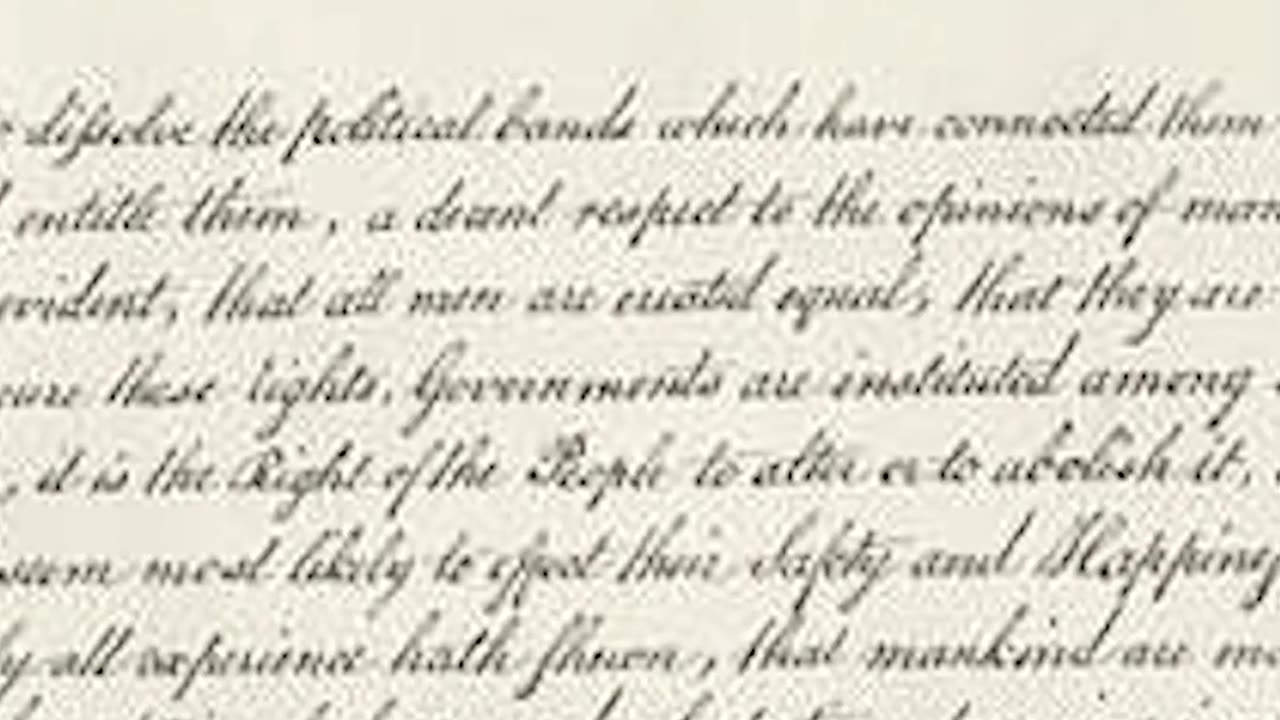 dissolve the political bands which have connected them
entitle them, a decent respect to the opinions of man
evident, that all men are created equal, that they are
cure these rights, Governments are instituted among
, it is the Right of the People to alter or to abolish it,
seem most likely to effect their Safety and Happine
ly all experience hath shewn, that mankind are mo